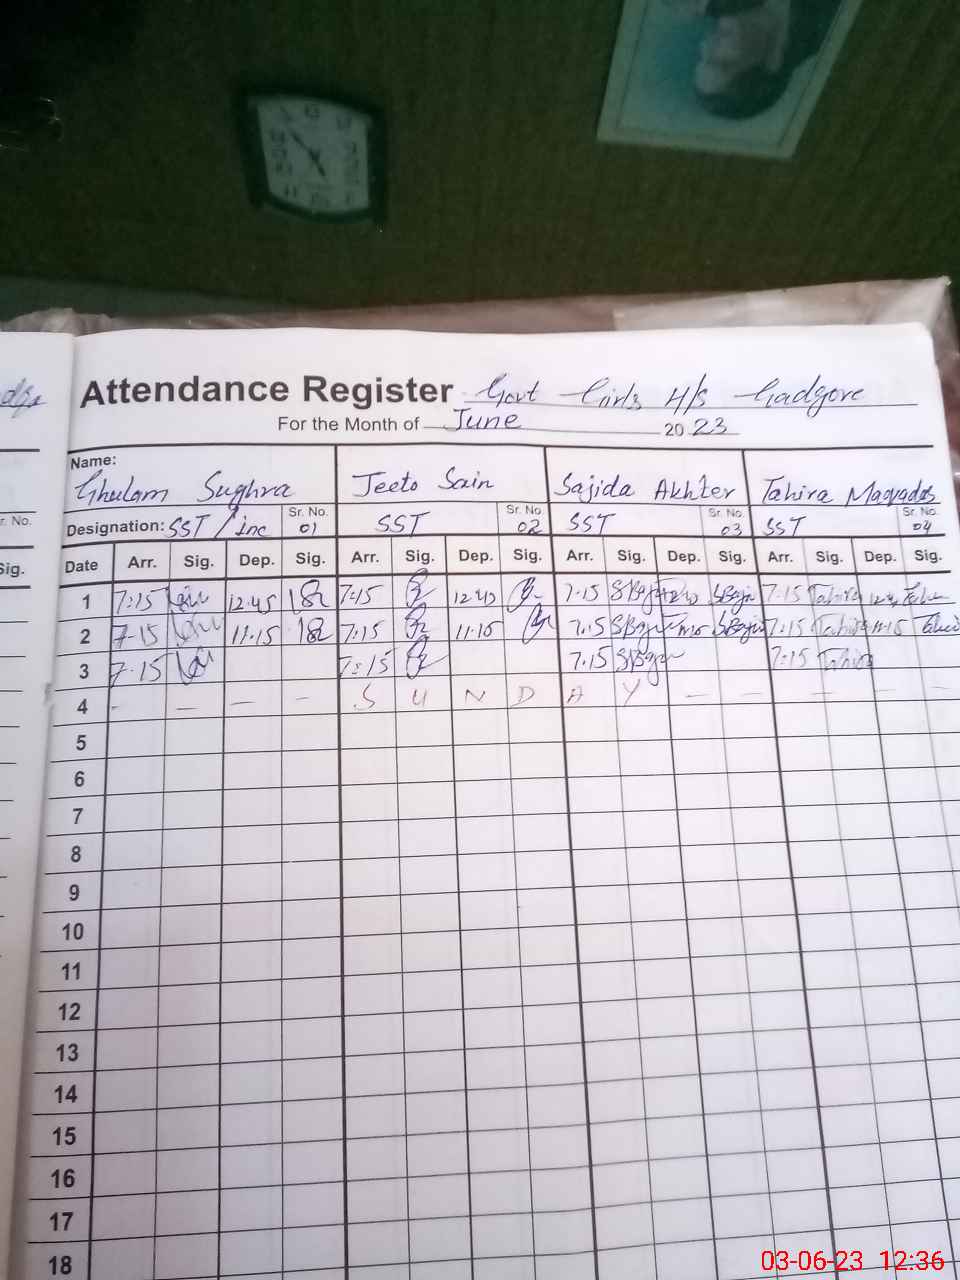 Attendance Register Govt Girls H/S Gadgore
For the Month of June 2023
Name:
Ghulam Sughra Jeeto Sain Sajida Akhter Tahira
r. No. Designation: SST / Inc Sr. No. 01 SST Sr. No. 02 SST Sr. No. 03 SST Sr. No. 04
Sig. Date Arr. Sig. Dep. Sig. Arr. Sig. Dep. Sig. Arr. Sig. Dep. Sig. Arr. Sig. Dep. Sig.
1 7:15 12:45 7:15 12:45 7:15 7:15 Tahira
2 7-15 11:15 7:15 11:15 7:15 7:15 Tahira 11:15
3 7:15 7:15 7:15 7:15 Tahira
4 - — — - S U N D A Y — — — — —
5
6
7
8
9
10
11
12
13
14
15
16
17
18
03-06-23 12:36